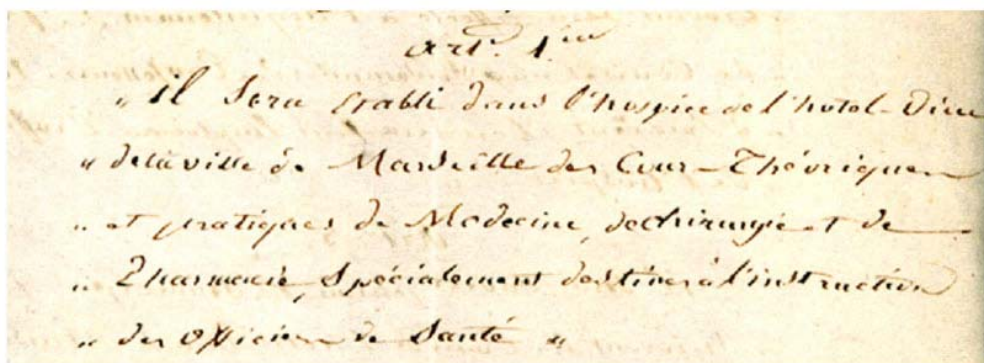 art. 1.ier
" il Sera établi dans l'hospice de l'hotel-Dieu
" de la ville de Marseille des Cour-Théoriques
" et pratiques de Médecine, de chirurgie et de
" Pharmacie, Spécialement destinés à l'instruction
" des officiers de Santé "